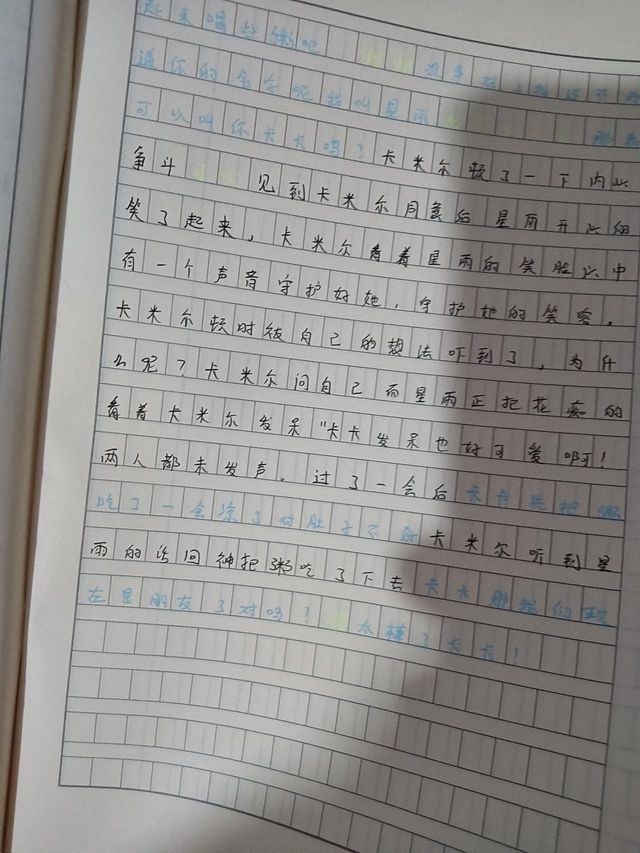 起来喝些粥吧 没事对
道你的名字呢我叫星雨 那我
可以叫你卡卡吗？卡米尔顿了一下内心
争斗 可以 见到卡米尔同意后星雨开心的
笑了起来，卡米尔看着星雨的笑脸心中
有一个声音守护好她，守护她的笑容，
卡米尔顿时被自己的想法吓到了，为什
么呢？卡米尔问自己而星雨正犯花痴的
看着卡米尔发呆“卡卡发呆也好可爱啊！
两人都未发声。过了一会后卡卡快把粥
吃了一会凉了对肚子不好卡米尔听到星
雨的话回神把粥吃了下去卡卡那我们现
在是朋友了对吗？ 太棒了卡卡！